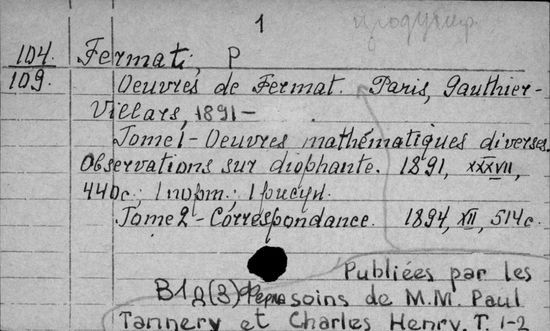 1
продуктир
104 Fermat, P
109. Oeuvres de Fermat. Paris, Gauthier-
Villars, 1891-
Tome 1 - Oeuvres mathématiques diverses.
Observations sur diophante. 1891, XXXVII,
440с.; 1 порт.; 1 рисун.
Tome 2 - Correspondance. 1894, XII, 514с.
Publiées par les
В1д(3) Ферма soins de M.M. Paul
Tannery et Charles Henry. T. 1-2